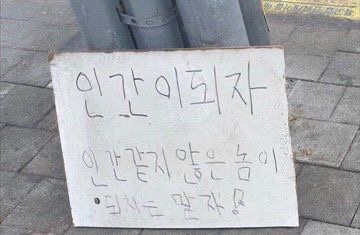 인간이되자
인간같지 않은 놈이
되지는 말자